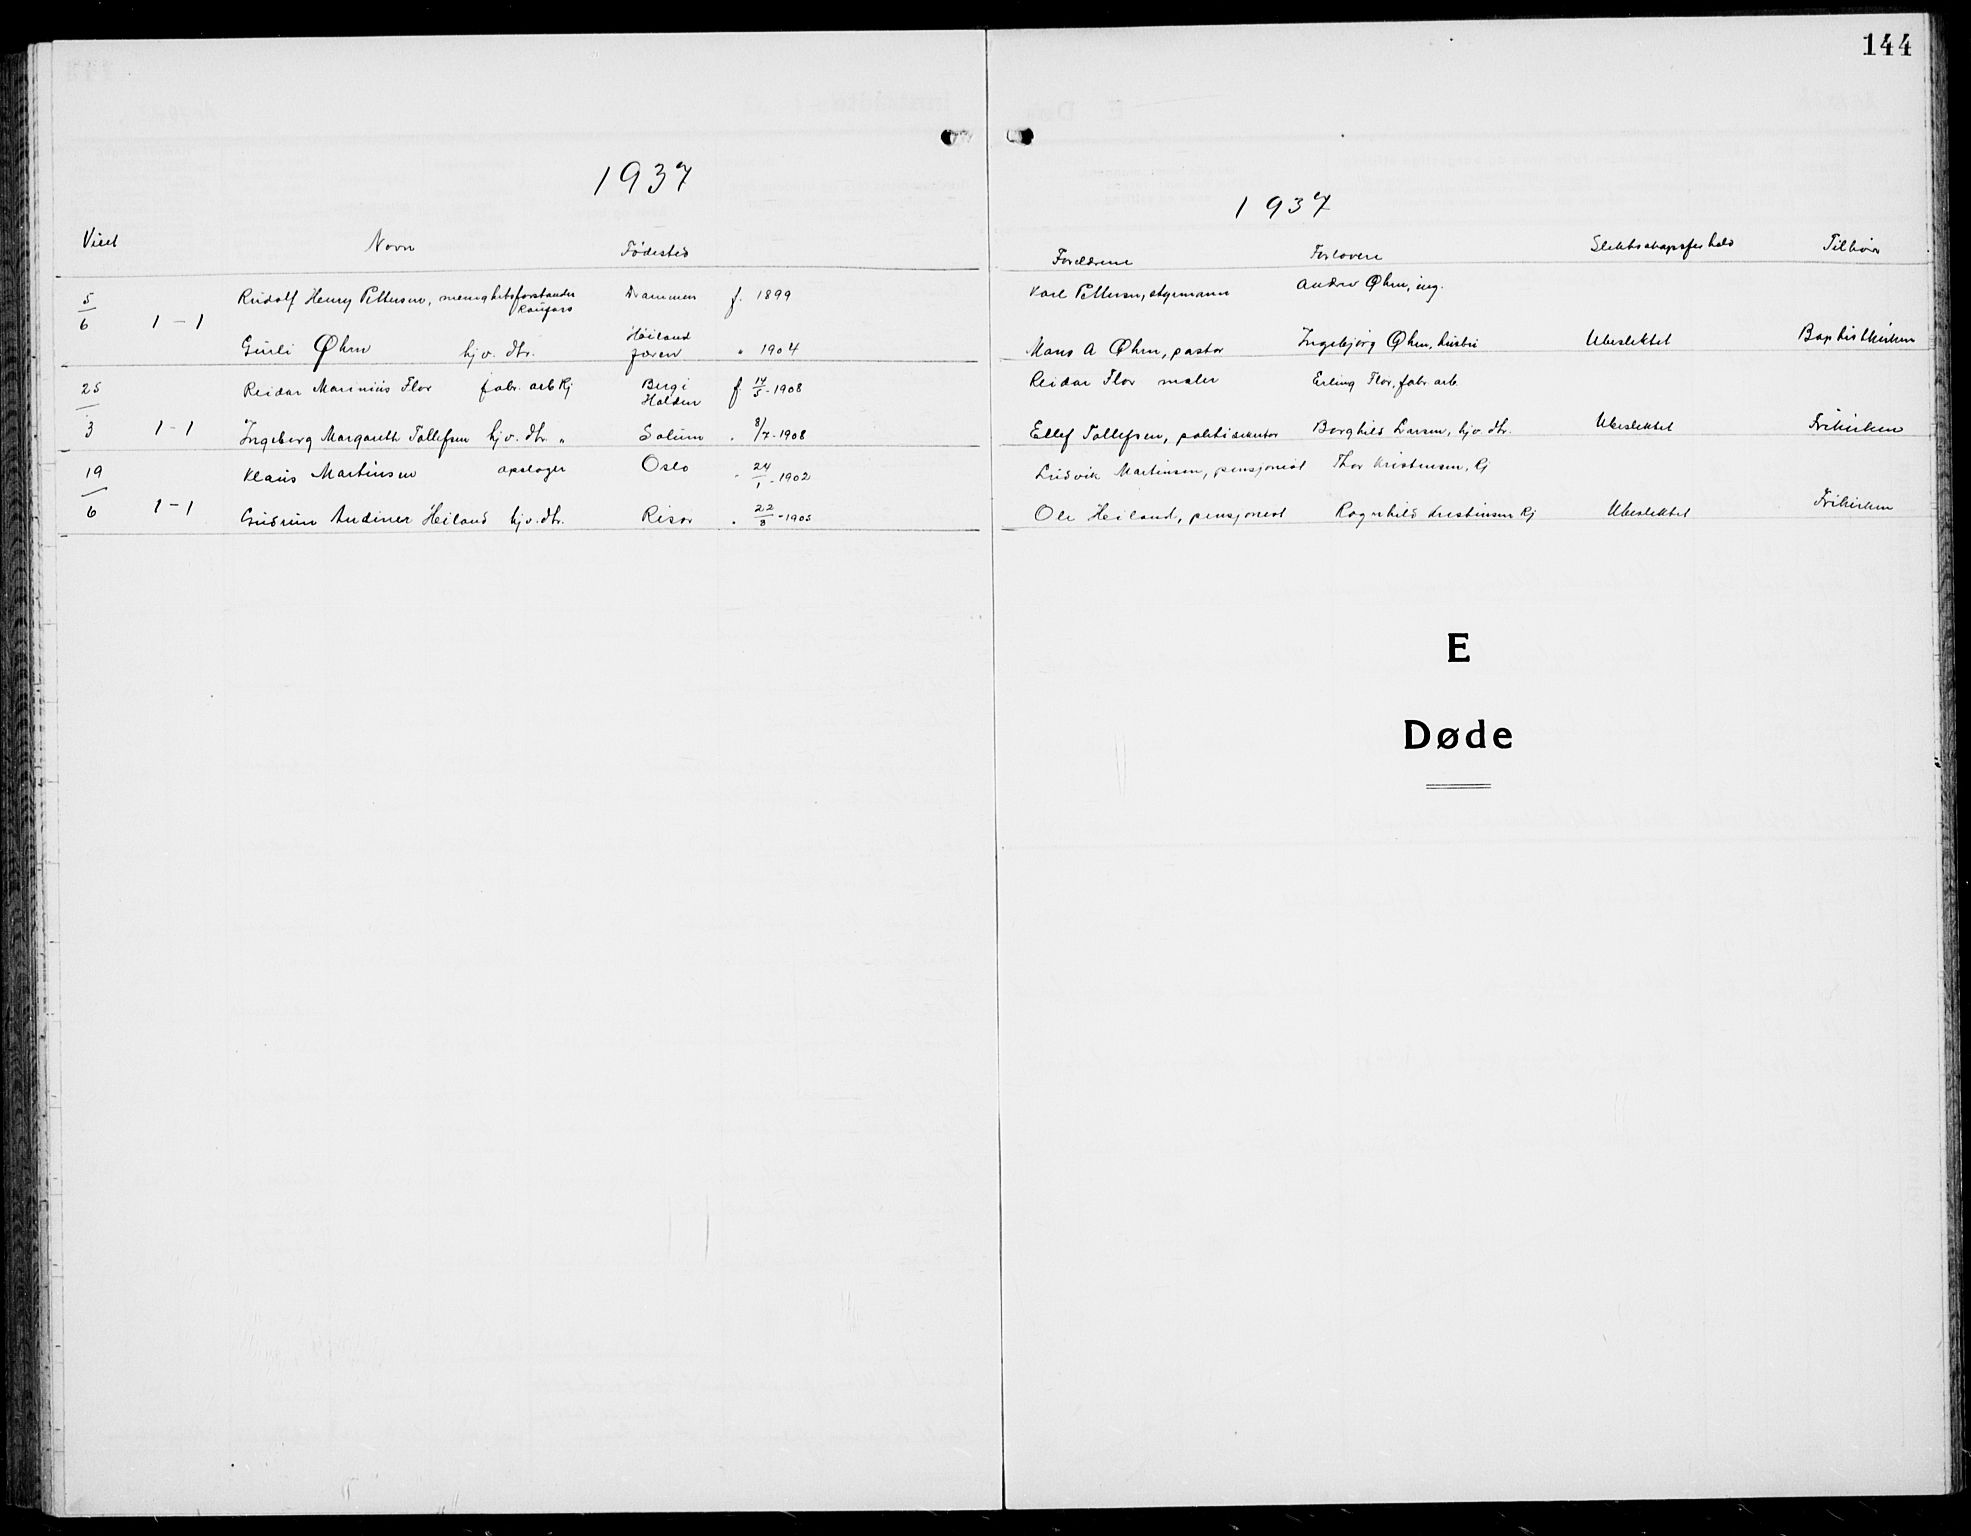 144
1937
Viet Navn Fødested
5/6 Rudolf Henry Pettersen, menighetsforstander Drammen f. 1899
Raufoss
1 – 1
Høiland
Guli Øhrn hj.v. dtr. Jæren " 1904
25 Reidar Marinius Flor fabr. arb Kj Bergi f 17/5-1908
Halden
3 1 – 1 Ingeborg Margareth Tollefsen hj.v. dtr. " Solum " 8/7-1908
19 Klaus Martinsen opslager Oslo " 24/1-1902
6 1 – 1 Gudrun Andinor Heiland hj.v.dtr. Risør " 22/3-1905
1937
Foreldrene Forlovere Slektskapsforhold Tilhører
Karl Pettersen, styrmann Andrew Øhrn, ing.
Mans A Øhrn, pastor Ingebjørg Øhrn, hustru Ubeslektet Baptistkirken
Reidar Flor maler Erling Flor, fabr arb
Ellef Tollefsen, politisekretær Borghild Larsen, hj.v. dtr. Ubeslektet Frikirken
Ludvik Martinsen, pensjonist Thor Kristensen, Kj
Ole Heiland, pensjonist Ragnhild Kristensen Kj Ubeslektet Frikirken
E
Døde